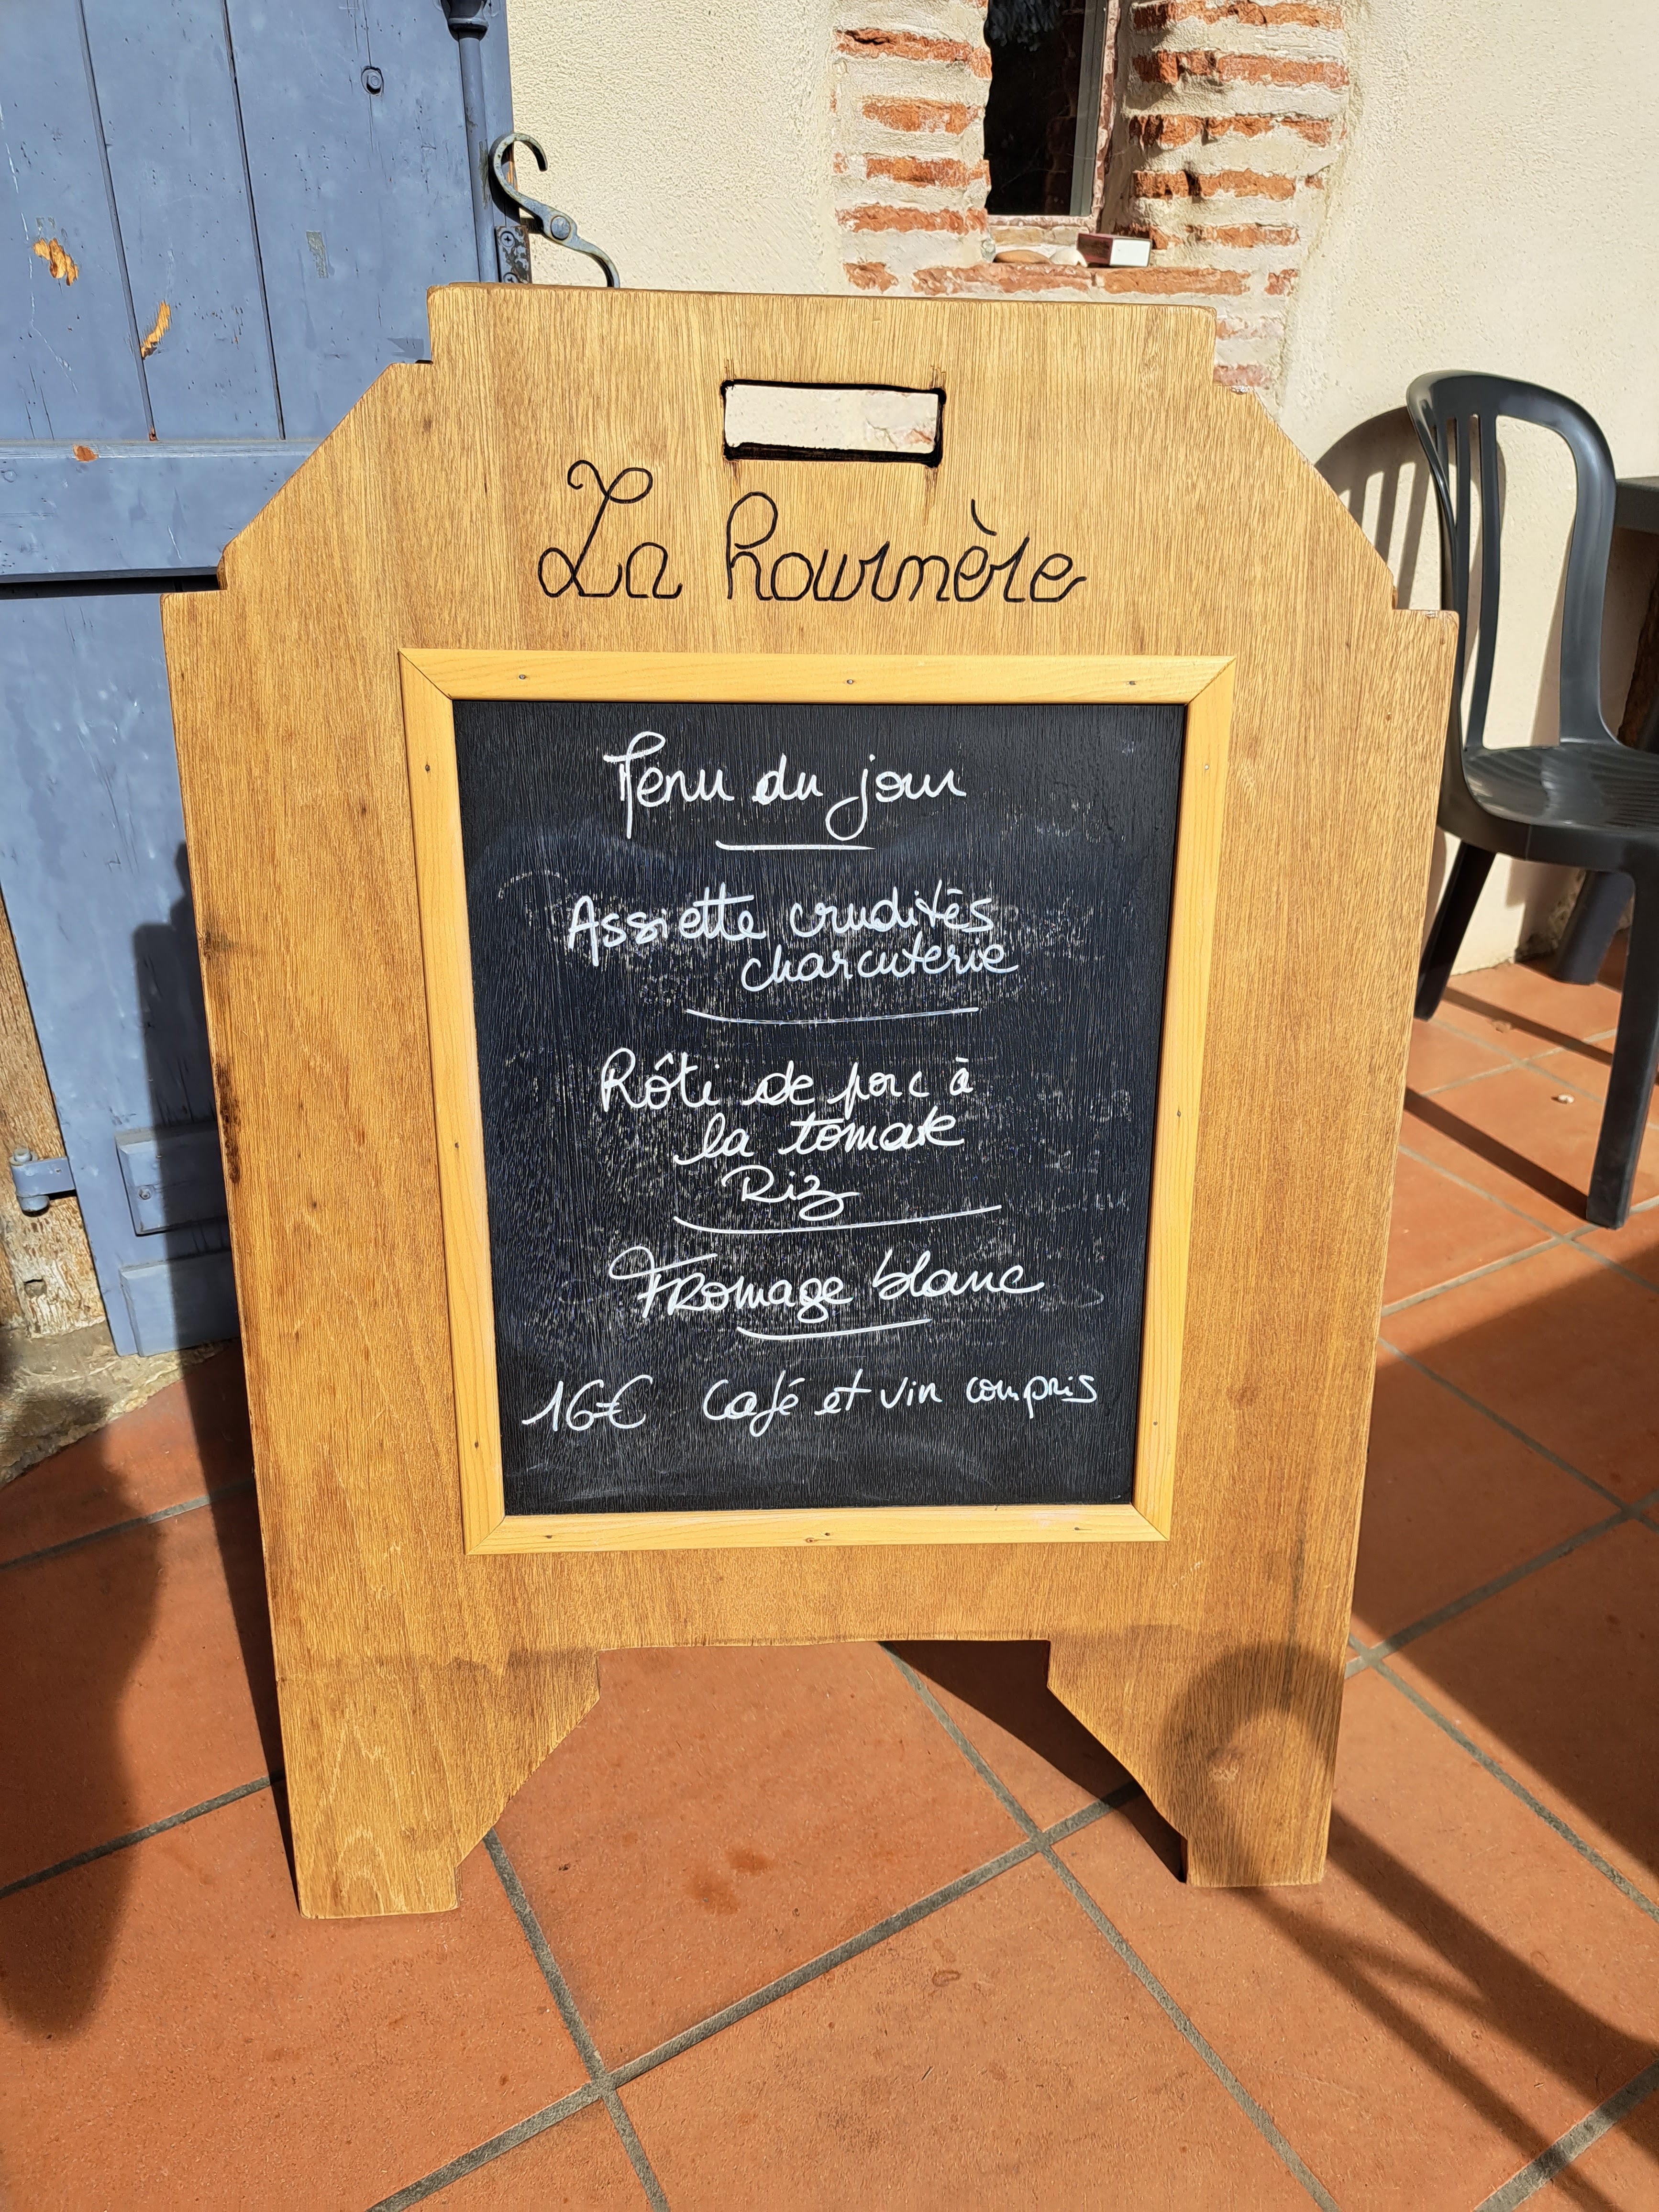 La hournère
Menu du jour
Assiette crudités
charcuterie
Rôti de porc à
la tomate
Riz
Fromage blanc
16€ Café et vin compris